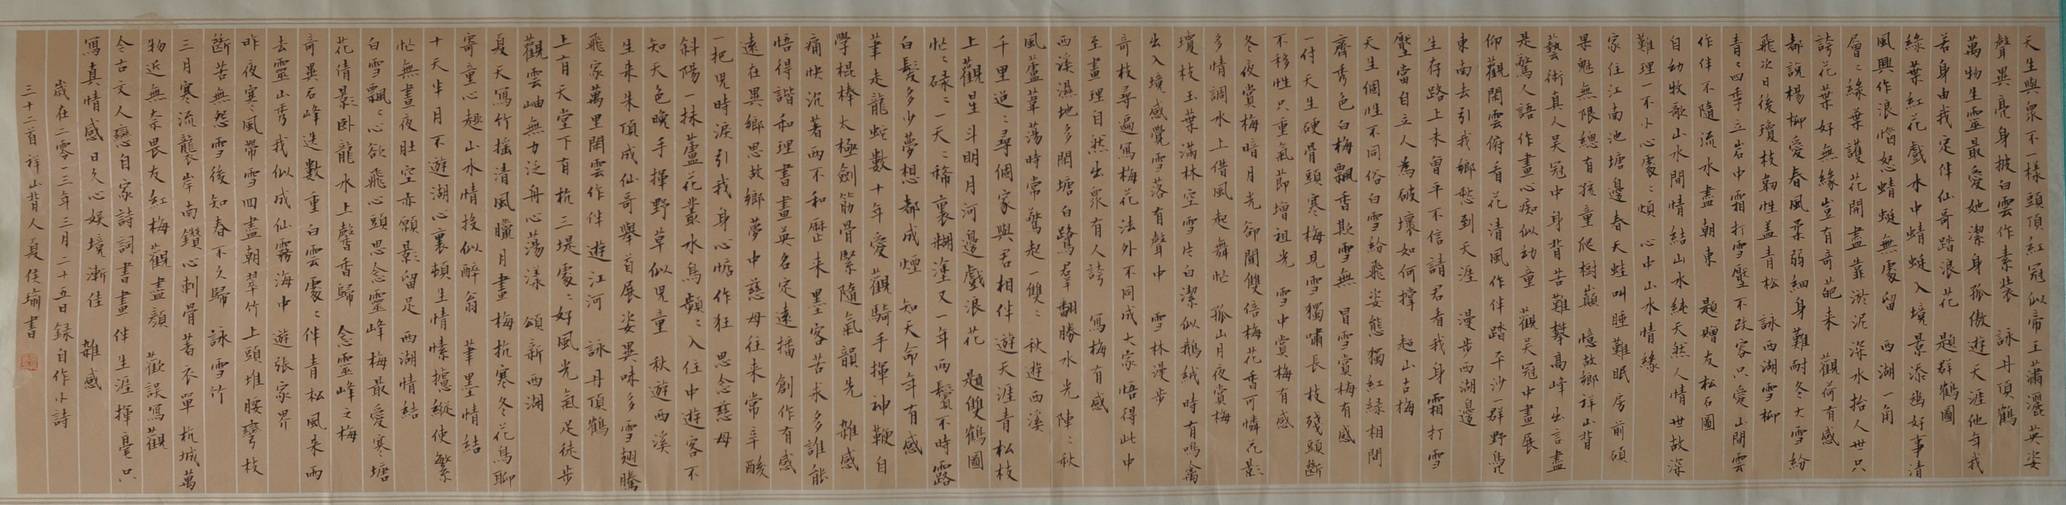 天生與眾不一樣頭頂紅冠似帝王瀟灑英姿
聲異亮身披白雲作素装 詠丹頂鶴
萬物生靈最愛她潔身孤傲遊天涯他年我
若身由我定伴仙哥踏浪花 題群鶴圖
綠葉紅花戲水中蜻蜓入境景添幽好事清
風興作浪惱怒蜻蜓無處留 西湖一角
層層綠葉護花開盡藏淤泥深水抬人世只
誇花葉好無緣豈有奇葩來 觀荷有感
都說楊柳愛春風柔弱細身難耐冬大雪紛
飛次日後瓊枝韌性盖青松 詠西湖雪柳
青青四季立岩中霜打雪壓不改容只愛山間雲
作伴不隨流水盡朝東 題贈友松石圖
自幼牧歌山水間情結山水純天然人情世故深
難理一不小心處處煩 心中山水情緣
家住江南池塘邊春天蛙叫睡難眠房前碩
果魁無限總有孩童爬樹巔 憶故鄉祥山背
藝術真人吴冠中身背苦難攀高峰出言盡
是驚人語作畫心痴似幼童 觀吴冠中畫展
仰觀閑雲俯看花清風作伴踏平沙一群野鳧
東南去引我鄉愁到天涯 漫步西湖邊
生存路上未曾平不信請君看我身霜打雪
壓當自立人為破壞如何撑 超山古梅
天生個性不同俗白雪紛飛姿態獨紅綠相間
齊秀色白梅飄香欺雪無 冒雪賞梅有感
一付天生硬骨頭寒梅見雪獨嘯長枝殘頭斷
不移性只重氣節增祖光 雪中賞梅有感
冬夜賞梅暗月光卻聞雙倍梅花香可憐花影
多情調水上借風起舞忙 孤山月夜賞梅
瓊枝玉葉滿林空雪片白潔似鵝絨時有鳴禽
出入境感覺雪落有聲中 雪林漫步
奇枝尋遍寫梅花法外不同成大家悟得此中
至畫理自然出眾有人誇 寫梅有感
西溪濕地多閒塘白鷺羣翻勝水光陣陣秋
風蘆葦蕩時常驚起一雙雙 秋遊西溪
千里迢迢尋個家與君相伴遊天涯青松枝
上觀星斗明月河邊戲浪花 題雙鶴圖
忙忙碌碌一天天稀裏糊塗又一年兩鬢不時露
白髮多少夢想都成煙 知天命年有感
筆走龍蛇數十年愛觀騎手揮神鞭自
學棍棒太極劍筋骨緊隨氣韻先 雜感
痛快沉著两不和歷来墨客苦来多誰能
悟得諧和理書畫英名定遠播 創作有感
遠在異鄉思故鄉夢中慈母往来常辛酸
一把兒時淚引我身心恍作狂 思念慈母
斜陽一抹蘆花叢水鳥顫顫入住中遊客不
知天色晚手揮野草似兒童 秋遊西溪
生来朱頂成仙哥舉首展姿異味多雪翅騰
飛家萬里閑雲作伴遊江河 詠丹頂鶴
上有天堂下有杭三堤處處好風光氣足徒步
觀雲岫無力泛舟心蕩漾 頌新西湖
夏天寫竹摇清風臘月畫梅抗寒冬花鳥聊
寄童心趣山水情投似醉翁 筆墨情結
十天半月不遊湖心裏頓生情愫擾縱使繁
忙無晝夜肚空亦願影留足 西湖情結
白雪飄飄心欲飛心頭思念靈峰梅最愛寒塘
花倩影卧龍水上馨香歸 念靈峰之梅
奇異石峰迭數重白雲處處伴青松風来雨
去靈山秀我似成仙霧海中 遊張家界
昨夜寒風帶雪四盡朝翠竹上頭堆腰彎枝
斷苦無怨雪後知春不久歸 詠雪竹
三月寒流襲岸南鑽心刺骨著衣單杭城萬
物近無奈畏友紅梅觀盡顏 歡誤寫觀
今古文人戀自家詩詞書畫伴生涯揮毫只
寫真情感日久心娱境漸佳 雜感
歲在二零一三年三月二十五日録自作小詩
三十二首祥山背人夏侯瑜書